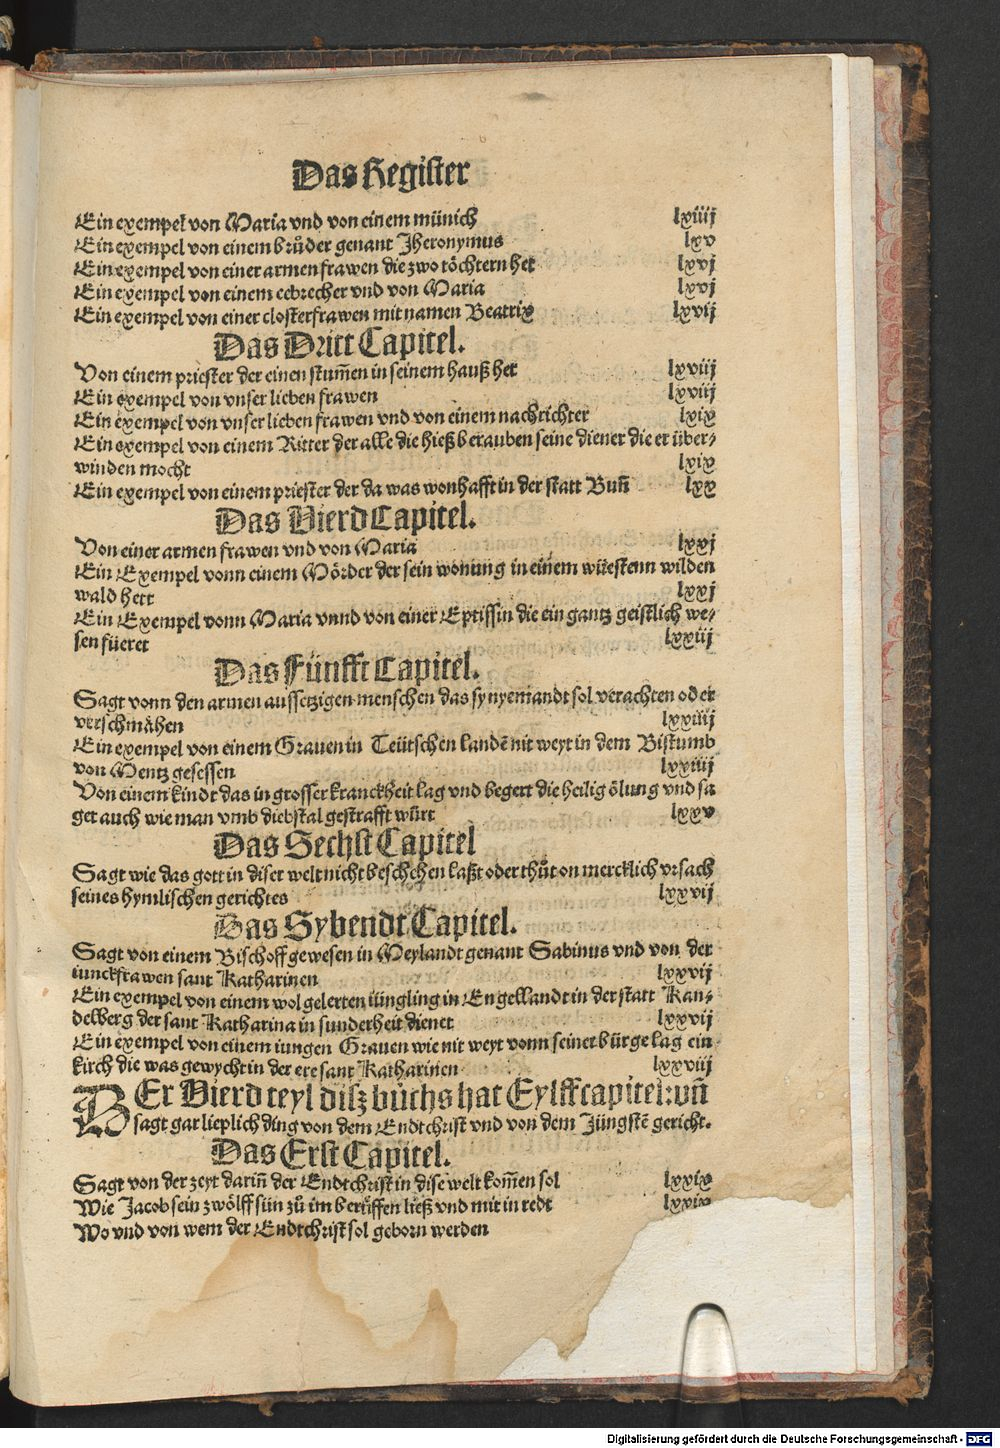 Das Register
Ein exempel von Maria vnd von einem münich lxiiij
Ein exempel von einem brůder genant Jheronymus lxv
Ein exempel von einer armen frawen die zwo töchtern het lxvj
Ein exempel von einem eebrecher vnd von Maria lxvj
Ein exempel von einer closterfrawen mit namen Beatrix lxvij
Das Dritt Capitel.
Von einem priester der einen stum̃en in seinem hauß het lxviij
Ein exempel von vnser lieben frawen lxviij
Ein exempel von vnser lieben frawen vnd von einem nachrichter lxix
Ein exempel von einem Ritter der alle die hieß berauben seine diener die er über⸗
winden mocht lxix
Ein exempel von einem priester der da was wonhafft in der statt Buñ lxx
Das Vierd Capitel.
Von einer armen frawen vnd von Maria lxxj
Ein Exempel vonn einem Mörder der sein wonung in einem wüestenn wilden
wald hett lxxj
Ein Exempel vonn Maria vnnd von einer Eptissin die ein gantz geistlich we⸗
sen füeret lxxiij
Das Fünfft Capitel.
Sagt vonn den armen aussetzigen menschen das sy nyemandt sol verachten oder
verschmähen lxxiiij
Ein exempel von einem Grauen in Teütschen landẽ nit weyt in dem Bistumb
von Mentz gesessen lxxiiij
Von einem kindt das in grosser kranckheit lag vnd begert die heilig ölung vnd sa
get auch wie man vmb diebstal gestrafft würt lxxv
Das Sechst Capitel
Sagt wie das gott in diser welt nicht beschehen laßt oder thůt on mercklich vrsach
seines hymlischen gerichtes lxxvij
Das Sybendt Capitel.
Sagt von einem Bischoff gewesen in Meylandt genant Sabinus vnd von der
iunckfrawen sant Katharinen lxxvij
Ein exempel von einem wol gelerten iüngling in Engellandt in der statt Kan⸗
delberg der sant Katharina in sunderheit dienet lxxvij
Ein exempel von einem iungen Grauen wie nit weyt vonn seiner bürge lag ein
kirch die was gewycht in der ere sant Katharinen lxxviij
DEr Vierd teyl disz bůchs hat Eylff capitel: vñ
sagt gar lieplich ding von dem Endtchrist vnd von dem Jüngstẽ gericht.
Das Erst Capitel.
Sagt von der zeyt dariñ der Endtchrist in dise welt kom̃en sol lxxix
Wie Jacob sein zwölff sün zů im berůffen ließ vnd mit in redt lxxix
Wo vnd von wem der Endtchrist sol geborn werden
Digitalisierung gefördert durch die Deutsche Forschungsgemeinschaft - DFG